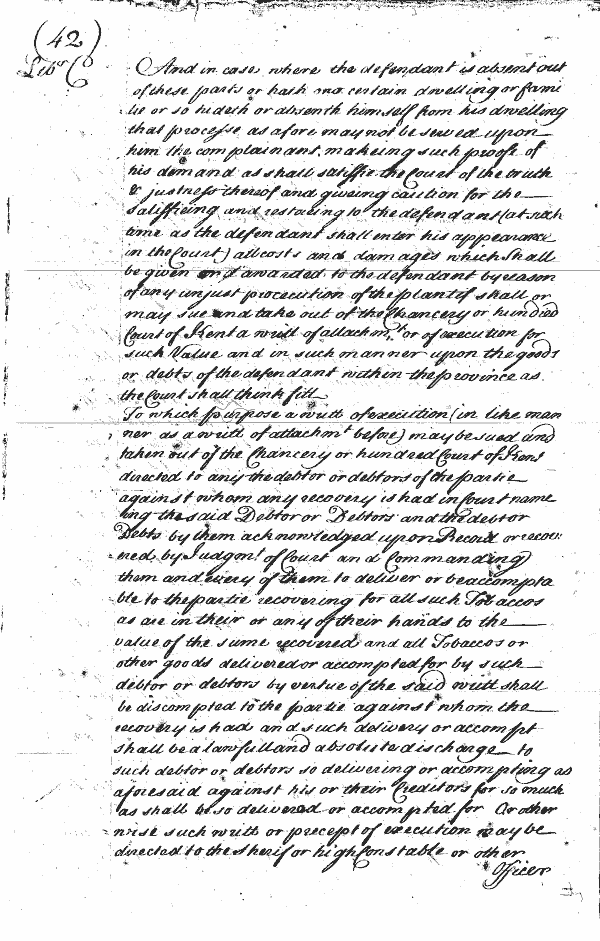 (42)
Liber C
And in case where the defendant is absent out
of these parts or hath no certain dwelling or fami
lie or so hideth or absenth himself from his dwelling
that processe as afore may not be served upon
him the complainant, makeing such proofe of
his demand as shall satisfie the Court of the truth
& justness thereof and giveing caution for the
satisfieing and restoreing to the defendant (at such
time as the defendant shall enter his appearance
in the Court) all costs and damages which shall
be given and awarded to the defendant by reason
of any unjust procecution of the plantif shall or
may sue and take out of the Chancery or hundred
Court of Kent a writt of attachmt, or of execution for
such Value and in such manner upon the goods
or debts of the defendant within the province as
the Court shall think fitt
To which purpose a writt of execution (in like man
ner as a writt of attachmt before) may be sued and
taken out of the Chancery or hundred Court of Kent
directed to any the debtor or debtors of the partie
against whom any recovery is had in Court name
ing the said Debtor or Debtors and the debtor
Debts by them acknowledged upon Record or recov
red by Judgmt of Court and Commanding
them and every of them to deliver or be accompta
ble to the partie recovering for all such Tobaccos
as are in their or any of their hands to the
value of the sume recovered and all Tobaccos or
other goods delivered or accompted for by such
debtor or debtors by vertue of the said writt shall
be discompted to the partie against whom the
recovery is had and such delivery or accompt
shall be a lawfull and absolute discharge to
such debtor or debtors so delivering or accompting as
aforesaid against his or their Creditors for so much
as shall be so delivered or accompted for Or other
wise such writt or precept of execution may be
directed to the sherif or high Constable or other
Officer